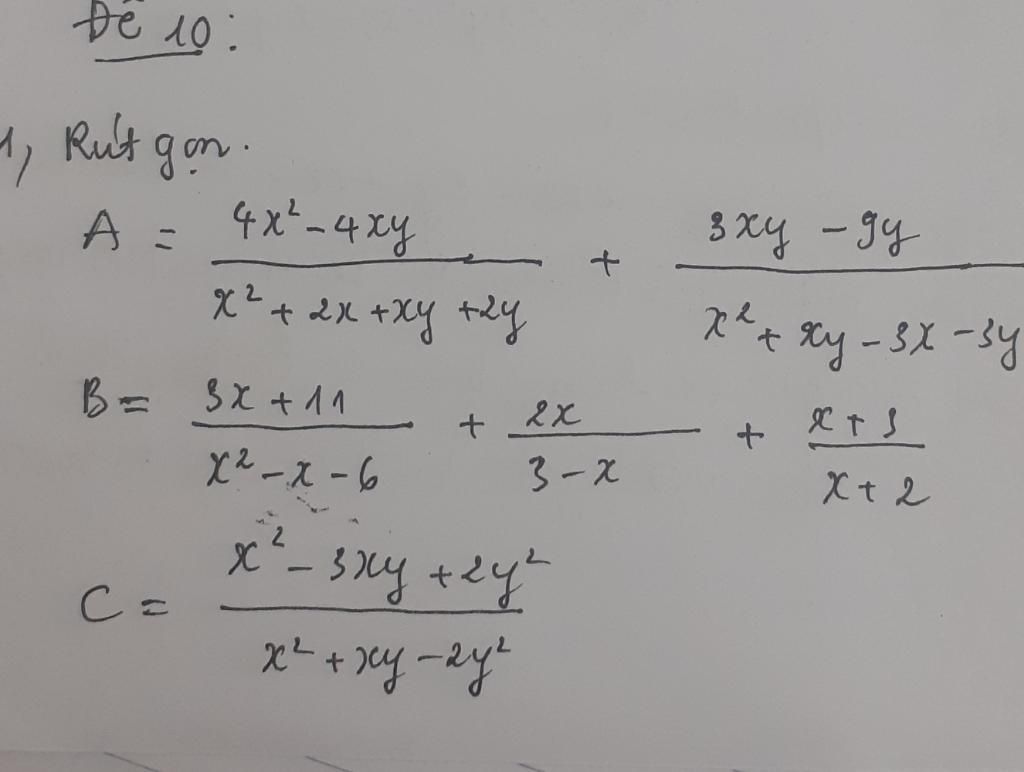 Đề 10:
1, Rút gọn.
A = (4x² - 4xy)/(x² + 2x + xy + 2y) + (3xy - 9y)/(x² + xy - 3x - 3y)
B = (3x + 11)/(x² - x - 6) + 2x/(3 - x) + (x + 3)/(x + 2)
C = (x² - 3xy + 2y²)/(x² + xy - 2y²)